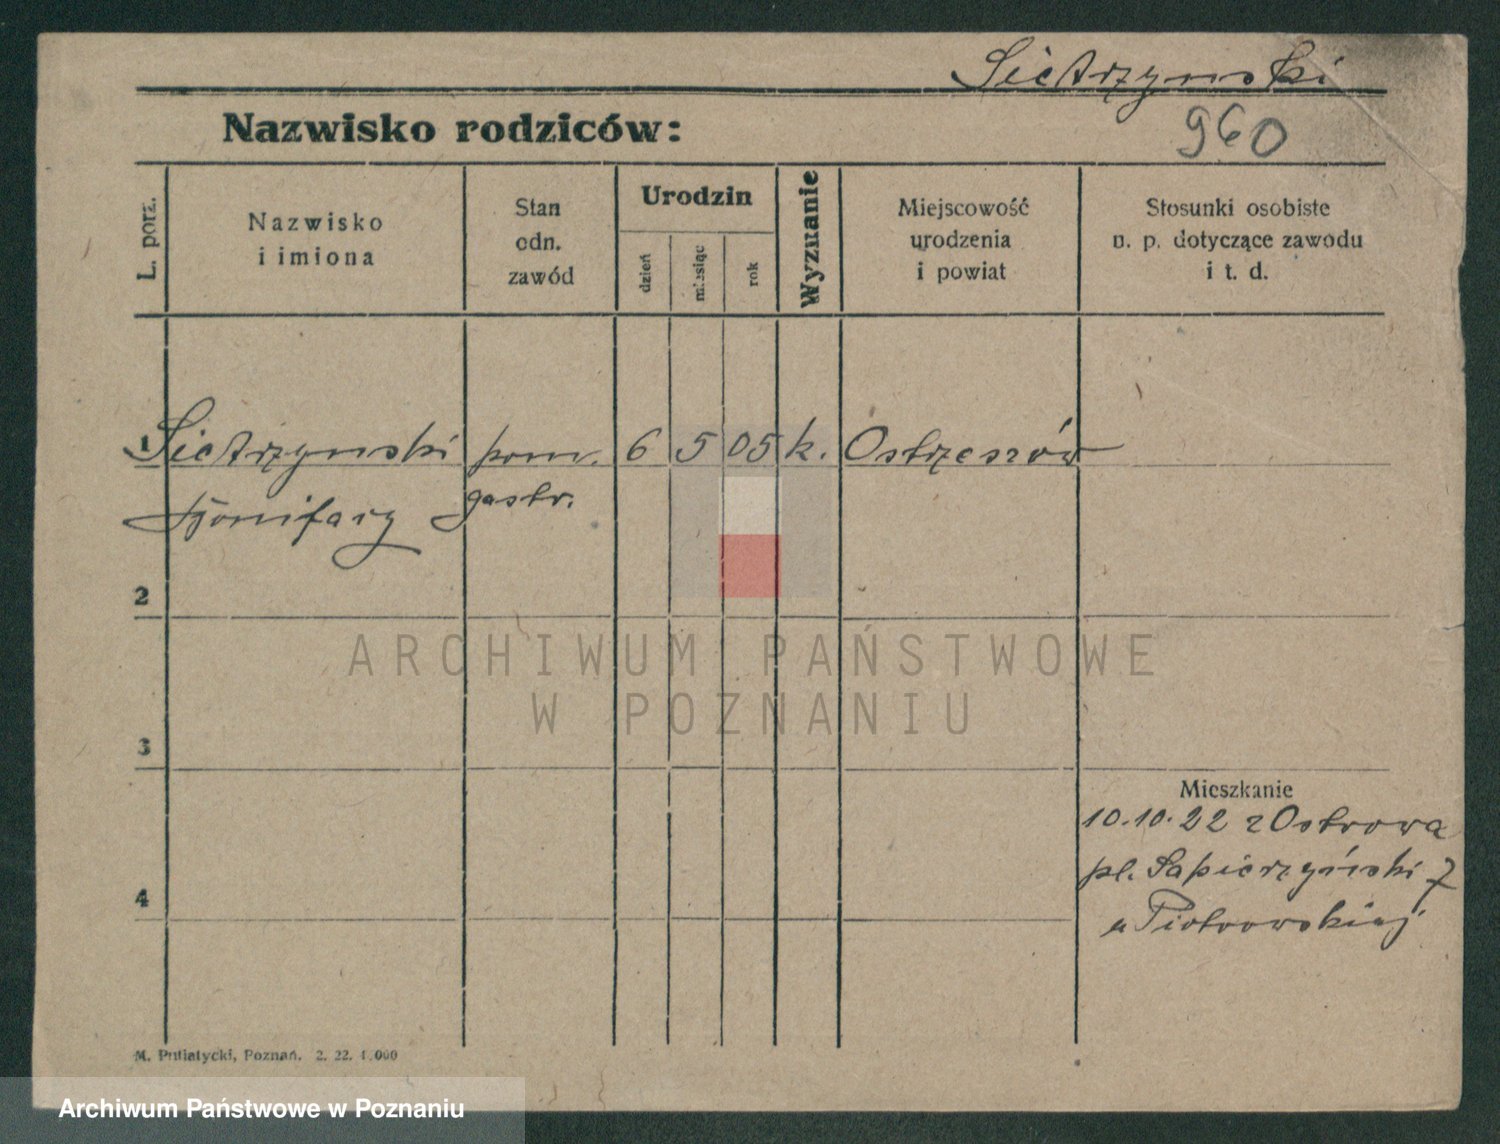 Sietrzynski
960
Nazwisko rodziców:
L. porz.
Nazwisko
i imiona
Stan
odn.
zawód
Urodzin
dzień
miesiąc
rok
Wyznanie
Miejscowość
urodzenia
i powiat
Stosunki osobiste
n. p. dotyczące zawodu
i t. d.
1 Sietrzynski pom. 6 5 05 k. Ostrzeszów
Bonifacy gastr.
2
ARCHIWUM PAŃSTWOWE
W POZNANIU
3
Mieszkanie
10.10.22 z Ostrowa
pl. Sapieżyński 7
4
u Piotrowskiej
M. Putiatycki, Poznań. 2. 22. 1.000
Archiwum Państwowe w Poznaniu